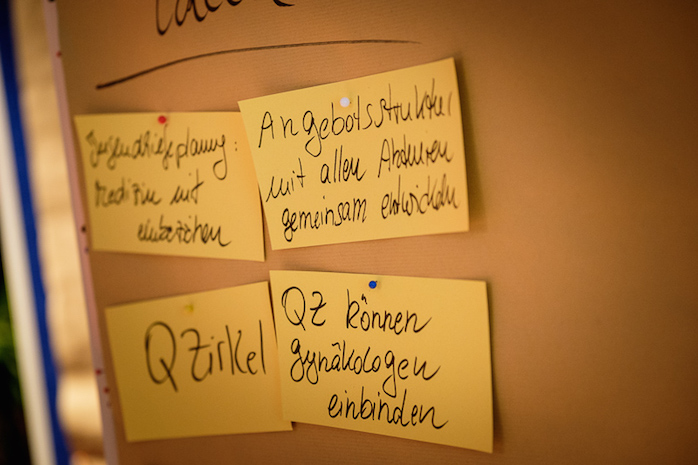 Jugendhilfeplanung:
Medizin mit
einbeziehen
Angebotsstruktur
mit allen Akteuren
gemeinsam entwickeln
QZirkel
QZ können
gynäkologen
einbinden